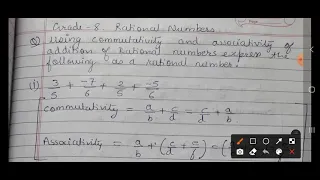 Grade-8. Rational Numbers.
Q) Using commutativity and associativity of
addition of Rational numbers express the
following as a rational number.
(i) 2/5 + -7/6 + 3/5 + -5/6
commutativity = a/b + c/d = c/d + a/b
Associativity = a/b + (c/d + e/f) = (